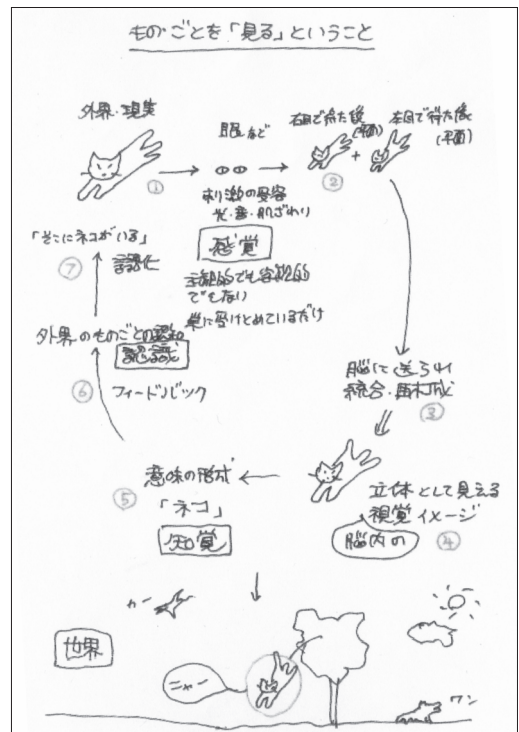 ものごとを「見る」ということ
外界・現実
①
眼など
刺激の受容
光・音・肌ざわり
感覚
主観的でも客観的
でもない
単に受けとめているだけ
右目で得た像
(平面)
+
左目で得た像
(平面)
②
脳に送られ
統合・再構成
③
立体として見える
視覚イメージ
脳内の
④
意味の形成
⑤
「ネコ」
知覚
外界のものごとの認知
認識
⑥
フィードバック
「そこにネコがいる」
⑦
言語化
世界
カー
ニャー
ワン